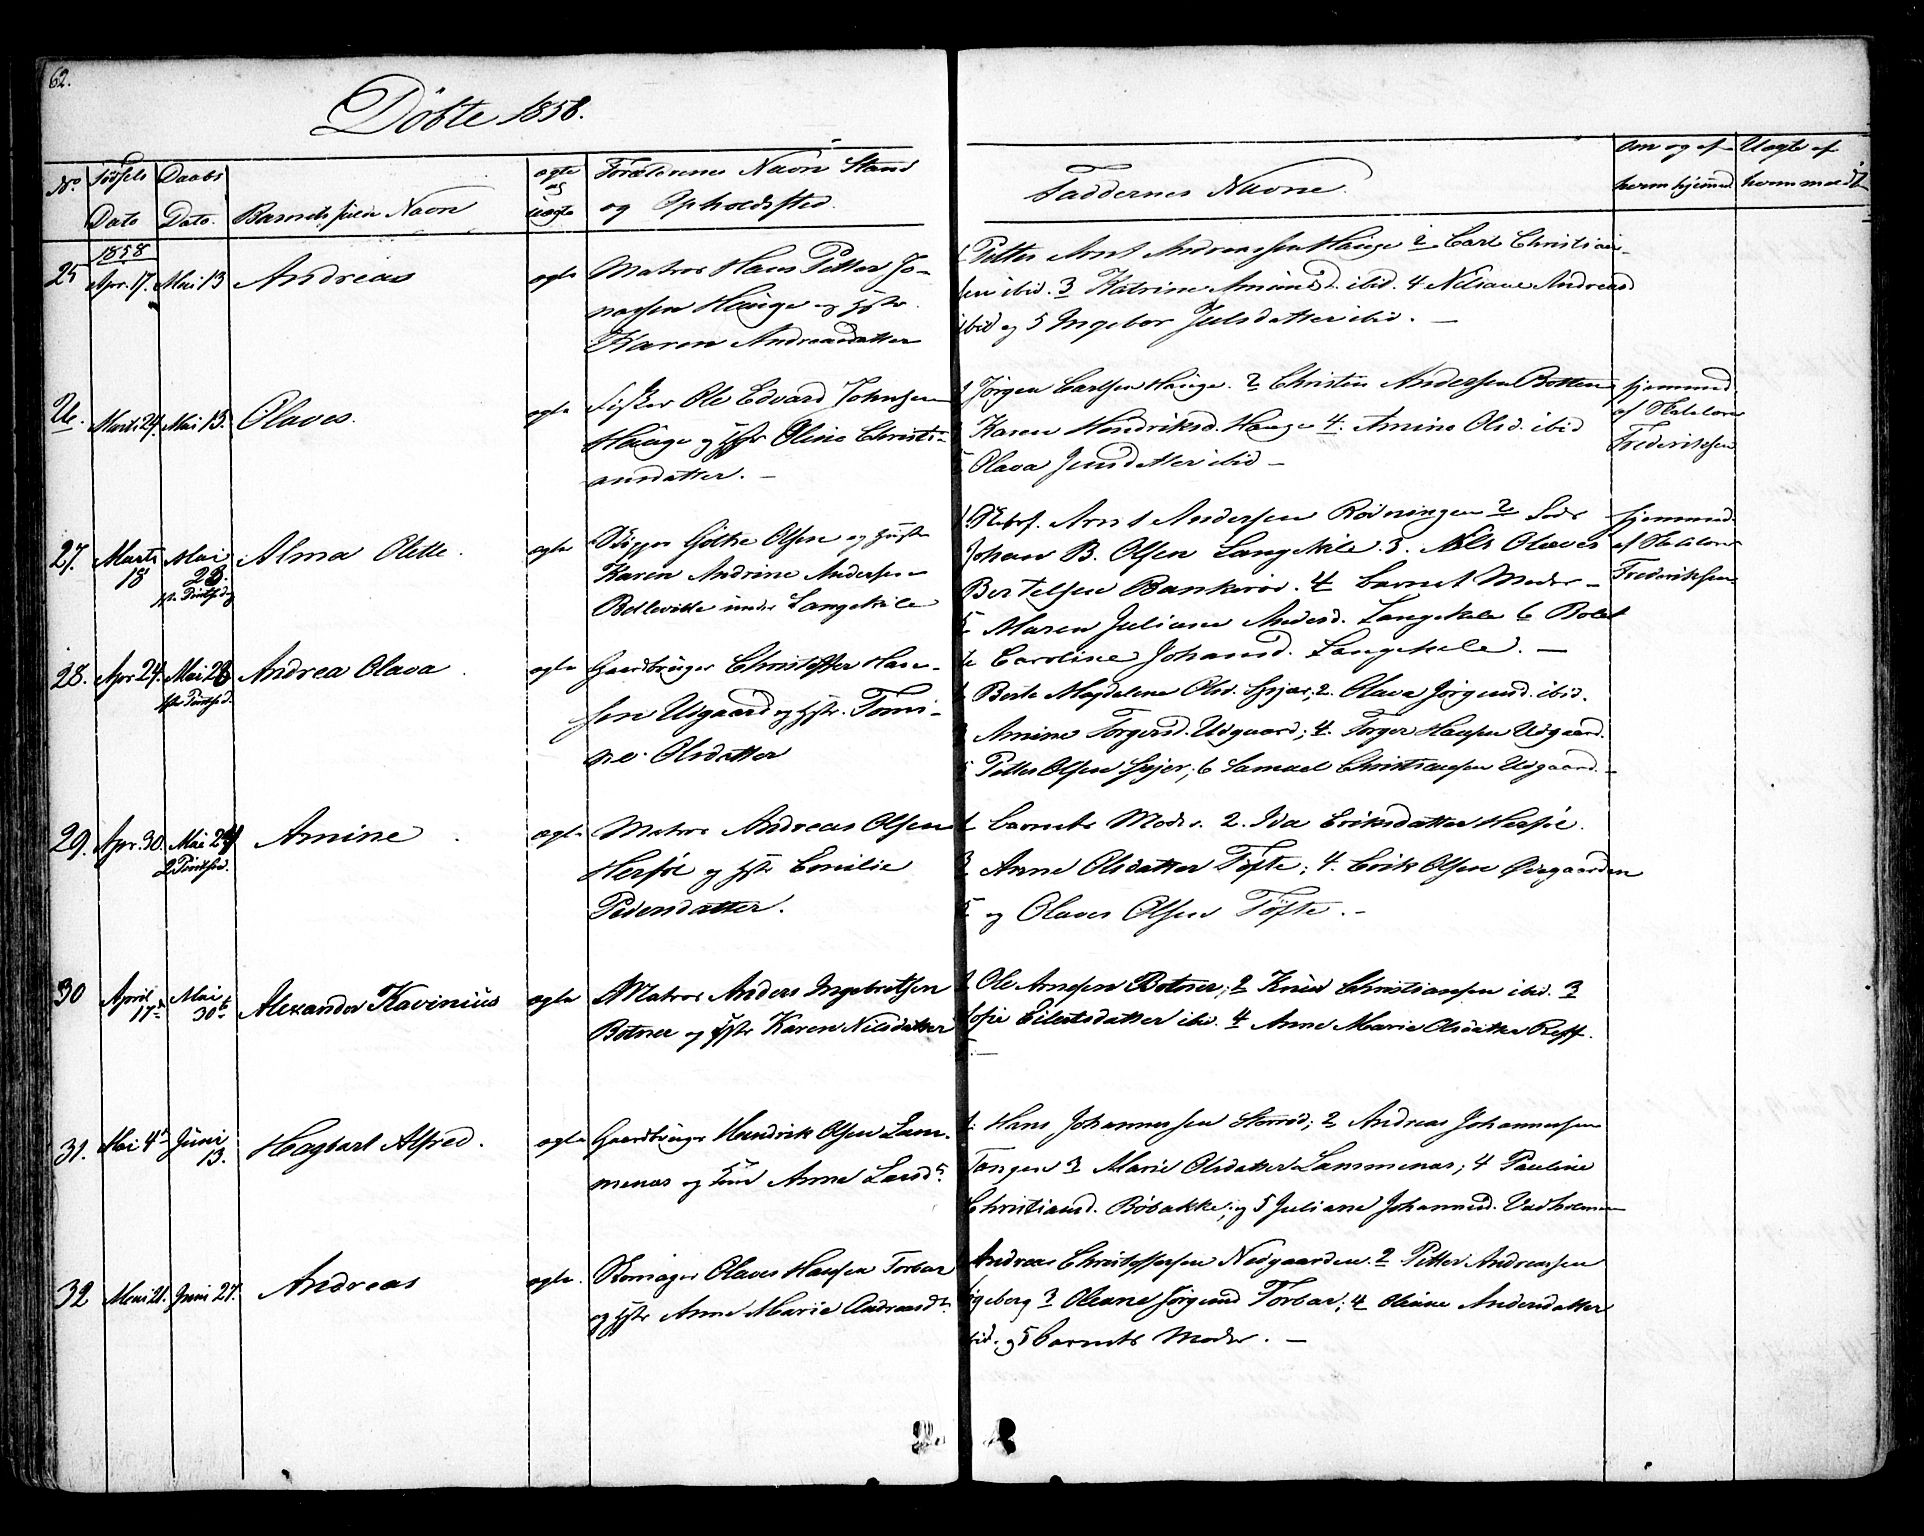 62.
Döbte 1858.
No Födsels Dato Daabs Dato. Barnets fulde Navn ægte og uægte Forældrenes Navn Stand og Opholdssted
Faddernes Navne. om og af hvem hjemmed. Uægte af hvem meldt
1858
25 Apr. 17. Mai 13 Andreas ægte Matros Hans Petter Jo-
nassen Hauge og Hstr.
Karen Andreasdatter
1 Petter Arnt Andreassen Hauge 2 Carl Christian-
sen ibid. 3 Katrine Amundd. ibid. 4 Nilsane Andreasd
ibid og 5 Ingebor Julsdatter ibid. —
26. Marts 29. Mai 13. Olaves. ægte Fisker Ole Edvard Johnsen
Hauge og Hstr Oline Christi-
ansdatter. —
1 Jörgen Carlsen Hauge. 2 Christen Andersen Botten
3 Karen Hendriksd. Hauge 4. Amine Olsd. ibid
5 Olava Jensdatter ibid —
hjemmed
af
Frederiksen
27. Marts 18 Mai 28. Alma Olette. ægte Skipper Göthe Olsen og Hustr
Karen Andrine Andersen
Bolleville under Langekile
1. Skibsf. Arnt Andersen Rödningen 2 Lods
Johan B. Olsen Langekile 3. Nils Olaves
Bertelsen Bankeröd. 4 Barnets Moder —
5 Maren Juliane Andersd. Langekile 6 Bolet
te Caroline Johansd. Langekile. —
hjemmed.
af
Frederiksen
28. Apr 24. Mai 23 1ste Pintsed. Andrea Olava. ægte Gaardbruger Christoffer Han-
sen Udgaard og Hstr. Tomi-
ne Olsdatter
1 Berte Magdalene Olsd. Spjær; 2. Olava Jörgensd. ibid.
3 Amine Torgersd. Udgaard; 4. Torger Hansen Udgaard.
5 Petter Olsen Spjer; 6 Samuel Christiansen Udgaard. —
29. Apr. 30. Mai 24 2 Pintsed. Amine ægte Matros Andreas Olsen
Herföl og Hstr Emilie
Pedersdatter.
1 Barnets Moder. 2. Ida Eriksdatter Herföl.
3 Anne Olsdatter Töfte; 4. Erik Olsen Övegaarden
5. og Olaves Olsen Töfte. —
30 April 17de Mai 30te Alexander Kavinius ægte Matros Anders Ingebretsen
Botner og Hstr Karen Nilsdatter
1 Ole Arnesen Botner; 2 Knud Christiansen ibid. 3
Sofie Eilertsdatter ibd. 4 Anne Marie Olsdatter Reff.
31. Mai 4de Juni 13. Hagbart Alfred. ægte Gaardbruger Hendrik Olsen Lam-
menæs og Hstr Anne Larsdr
1. Hans Johannessen Storröd; 2 Andreas Johannessen
Tangen 3 Marie Olsdatter Lammenæs; 4 Pauline
Christiansd. Böbakke; og 5 Juliane Johannesd. Vadholmen
32 Mai 21. Juni 27. Andreas ægte. Skomager Olaves Hansen Torbar
og Hstr Anne Marie Andreasdr
1 Andreas Christoffersen Nedgaarden. 2 Petter Andreassen
3 Oleane Jörgensd Torbar; 4 Andersdatter
ibid. og 5 Barnets Moder. —